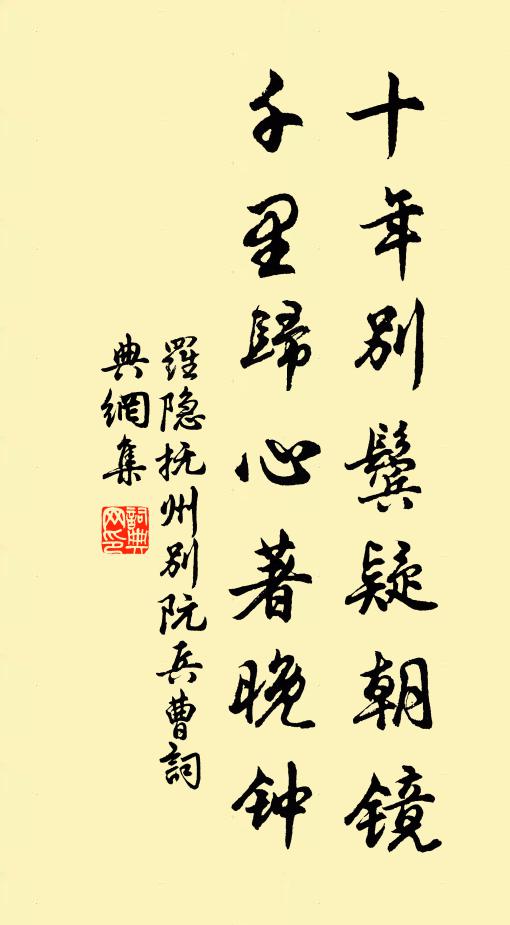 十年別鬓疑朝镜
千里歸心著晚钟
羅隐抚州别阮兵曹詞
典網集
詞典
网印